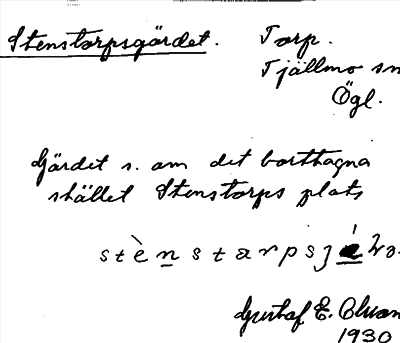 Stenstorpsgärdet. Torp.
Tjällmo sn
Ögl.
Gärdet s. om det borttagna
stället Stenstorps plats
Gustaf E. Olson
1930